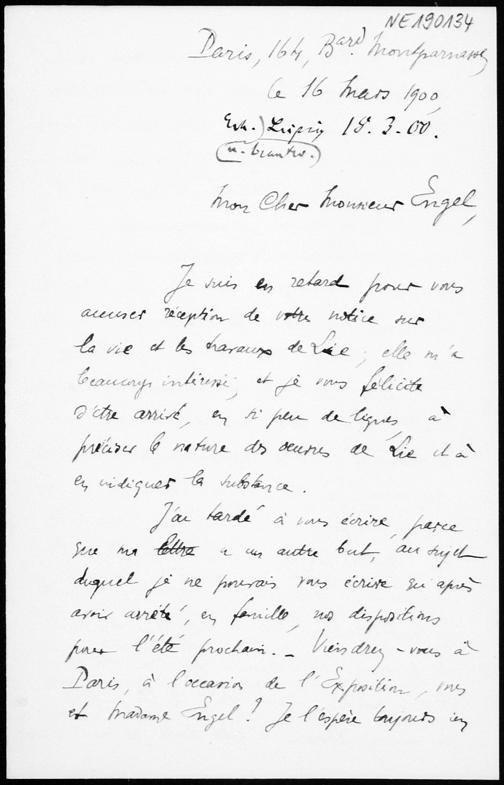 NE190134
Paris, 164, Bard Montparnasse
le 16 Mars 1900,
Erh.) Leipzig 18. 3. 00.
u. beantw.)
Mon Cher Monsieur Engel,
Je suis en retard pour vous
accuser réception de votre notice sur
la vie et les travaux de Lie ; elle m'a
beaucoup intéressé, et je vous félicite
d'être arrivé, en si peu de lignes, à
préciser la nature des oeuvres de Lie et à
en indiquer la substance.
J'ai tardé à vous écrire, parce
que ma lettre a un autre but, au sujet
duquel je ne pouvais vous écrire qu'après
avoir arrêté, en famille, nos dispositions
pour l'été prochain. _ Viendrez-vous à
Paris, à l'occasion de l'Exposition, vous
et Madame Engel? Je l'espère toujours en